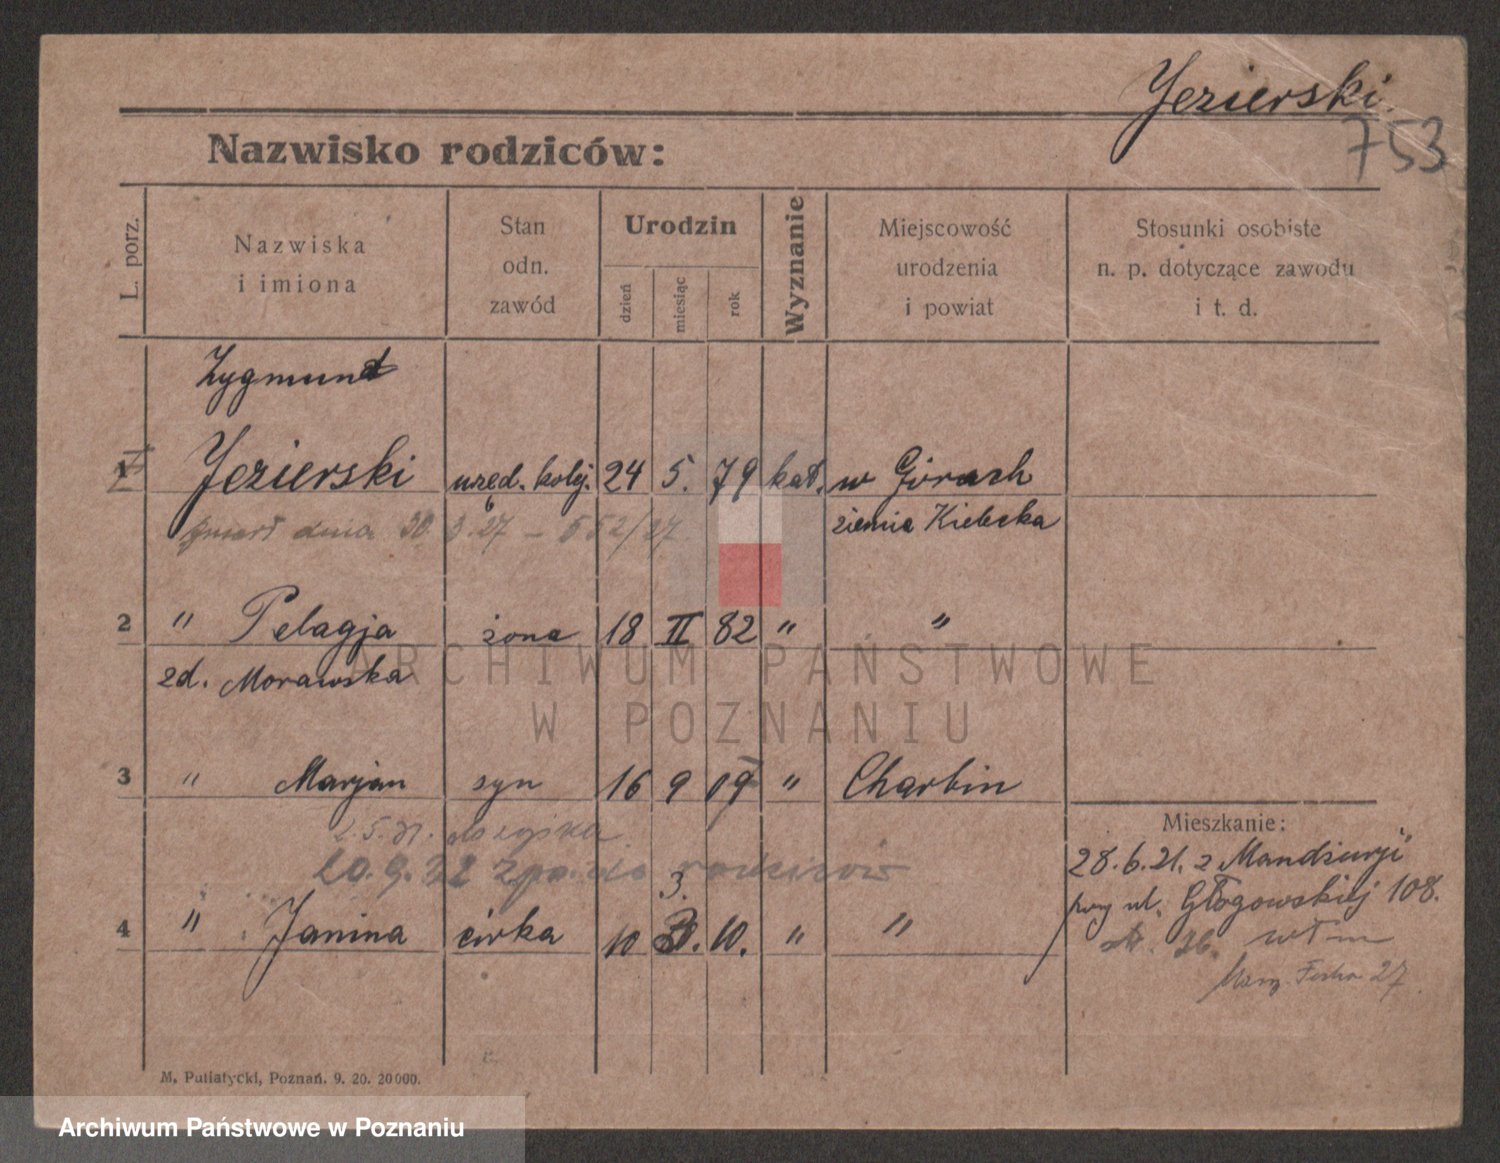 Jezierski.
753
Nazwisko rodziców:
L. porz.
Nazwiska
i imiona
Stan
odn.
zawód
Urodzin
dzień
miesiąc
rok
Wyznanie
Miejscowość
urodzenia
i powiat
Stosunki osobiste
n. p. dotyczące zawodu
i t. d.
Zygmunt
1 Jezierski urzęd. kolej. 24 5. 79 kat. w Górach
zmarł dnia 30 3.27 – 552/27 ziemia Kielecka
2 " Pelagja żona 18 II 82 " "
zd. Morawska
3 " Marjan syn 16 9 09 " Charbin
Mieszkanie:
2.5.31.
28.6.21. z Mandżurji
20.9.32 do rodziców
3.
przy ul. Głogowskiej 108.
4 " Janina córka 10 10. " "
27
M. Putiatycki, Poznań. 9. 20. 20000.
ARCHIWUM PAŃSTWOWE
W POZNANIU
Archiwum Państwowe w Poznaniu